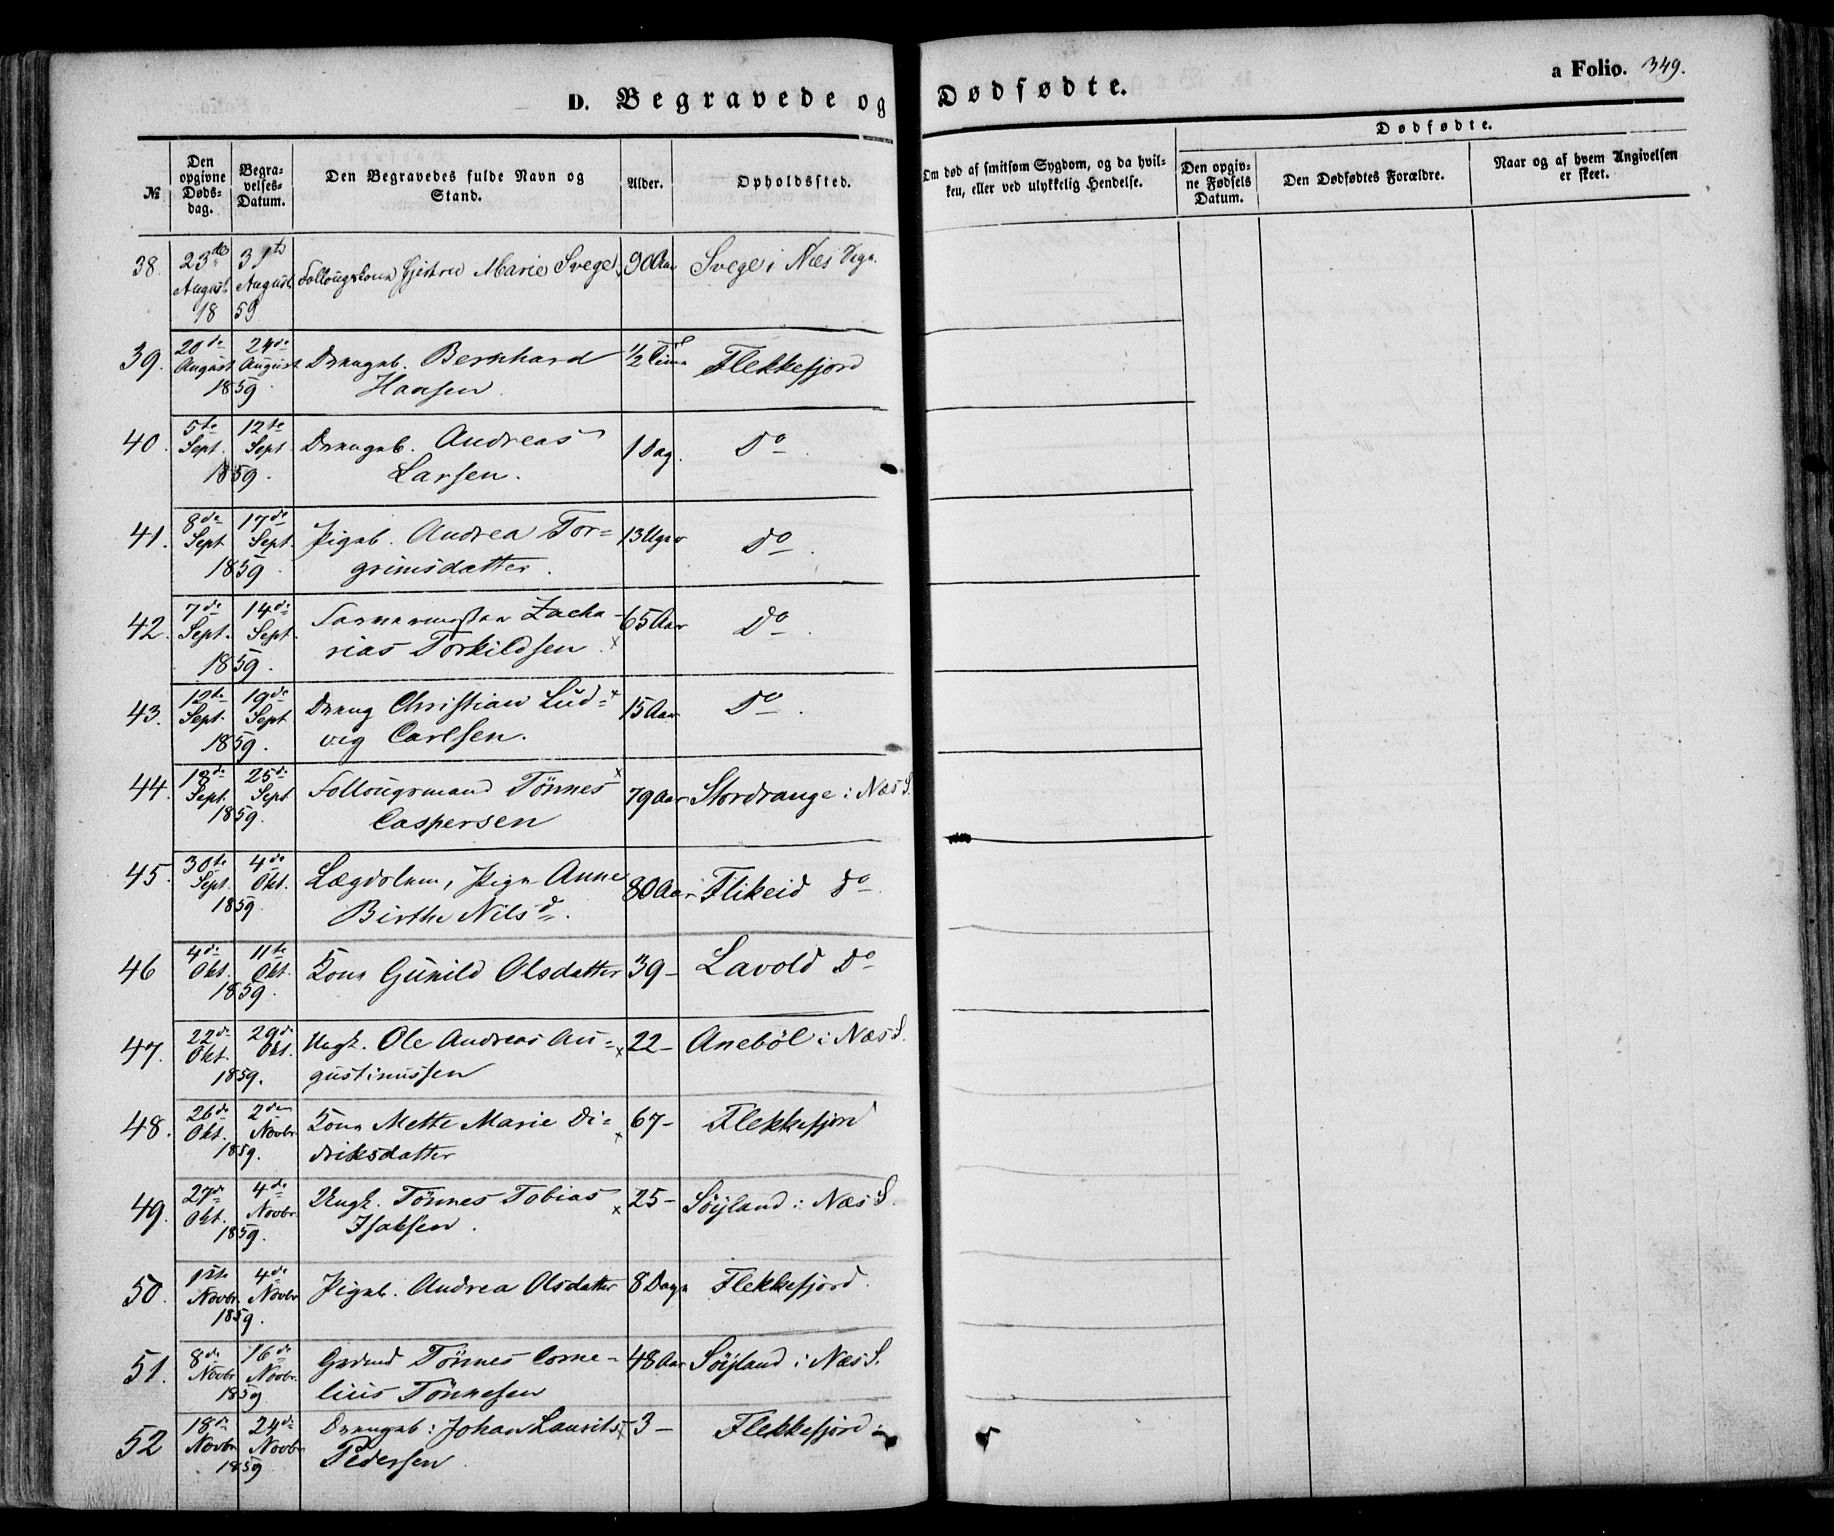 D. Begravede og Dødfødte.
a Folio. 349.
№
Den opgivne Døds-dag.
Begra-velses-Datum.
Den Begravedes fulde Navn og Stand.
Alder.
Opholdssted.
Om død af smitsom Sygdom, og da hvil-ken, eller ved ulykkelig Hendelse.
Dødfødte.
Den opgiv-ne Fødsels Datum.
Den Dødfødtes Forældre.
Naar og af hvem Angivelsen er skeet.
38. 23de August 31te August 1859 Follougskone Gjertru Marie Svege 90 Aar Svege i Næs
39. 20de August 24de August 1859. Drengeb. Bernhard
Hansen. 1/2 Time Flekkefjord
40. 5te Sept. 12te Sept. 1859. Drengeb. Andreas
Larsen. 1 Dag. Do.
41. 8de Sept 17de Sept. 1859. Pigeb. Andrea Tor=
grimsdatter. 13 Uger Do.
42. 7de Sept. 14de Sept. 1859. Zacha-
rias Torkildsen. x 65 Aar Do.
43. 12te Sept. 19de Sept 1859. Dreng Christian Lud=x
vig Carlsen. 15 Aar Do.
44. 18de Sept. 25de Sept 1859. Follougsmand Tönnes x
Caspersen 79 Aar Stordrange i Næs S.
45. 30te Sept. 4de Okt. 1859. Lægdslem, Pige Anne
Birthe Nilsd. 80 Aar Flikeid Do.
46 4de Okt. 11te Okt. 1859. Kone Gunild Olsdatter 39- Lavold Do
47. 22de Okt. 29de Okt. 1859. Ungk. Ole Andreas Au=x
gustinussen 22- Aneböl i Næs S.
48. 26de Okt. 2den Novbr 1859. Kone Mette Marie Di=x
driksdatter 67- Flekkefjord
49. 27de Okt. 4de Novbr. 1859. Ungk. Tönnes Tobias x
Isaksen. 25- Söyland i Næs S.
50. 1ste Novbr. 4de Novbr 1859. Pigeb. Andrea Olsdatter 8 Dage Flekkefjord.
51. 8de Novbr 16de Novbr. 1859 Grdmd Tönnes Corne-
lius Tönnesen 48 Aar Söyland i Næs S.
52 18de Novbr 24de Novbr 1859 Drengeb: Johan Laurits x
Pedersen. 3- Flekkefjord